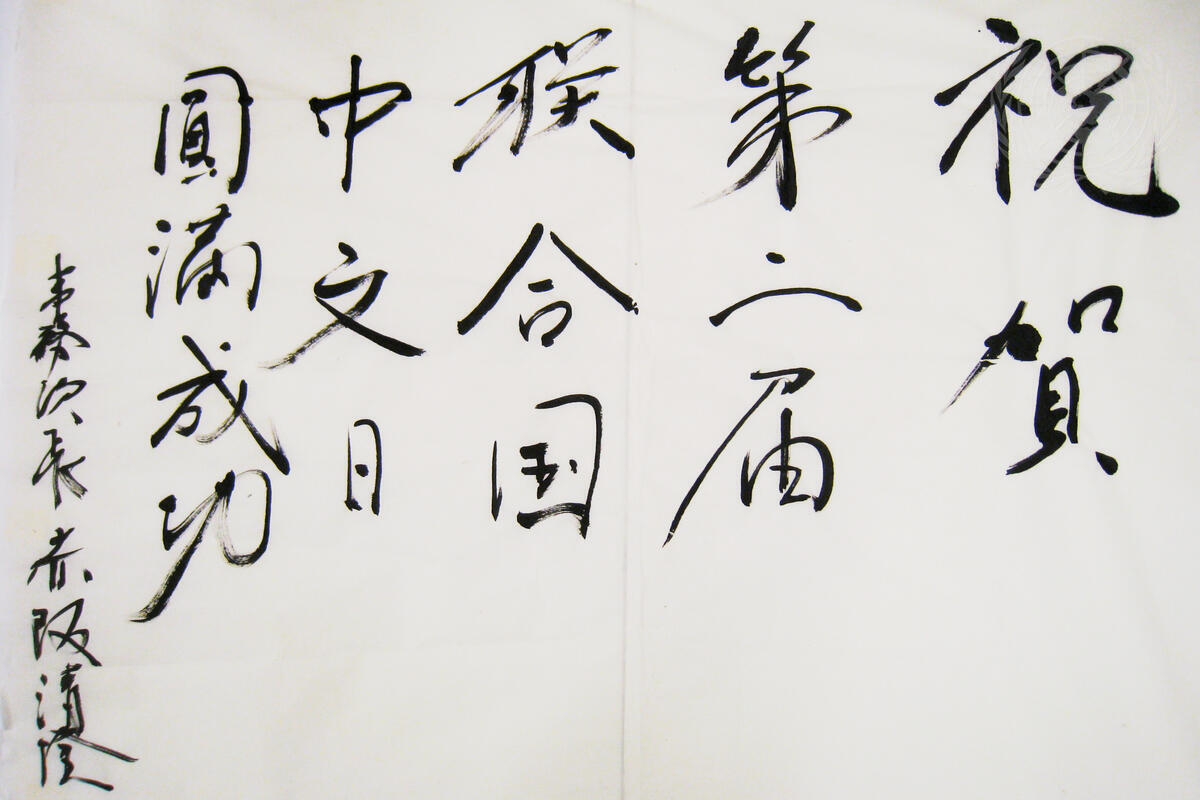 祝賀
第二届
联合国
中文日
圓滿成功
事務次長 赤阪清隆